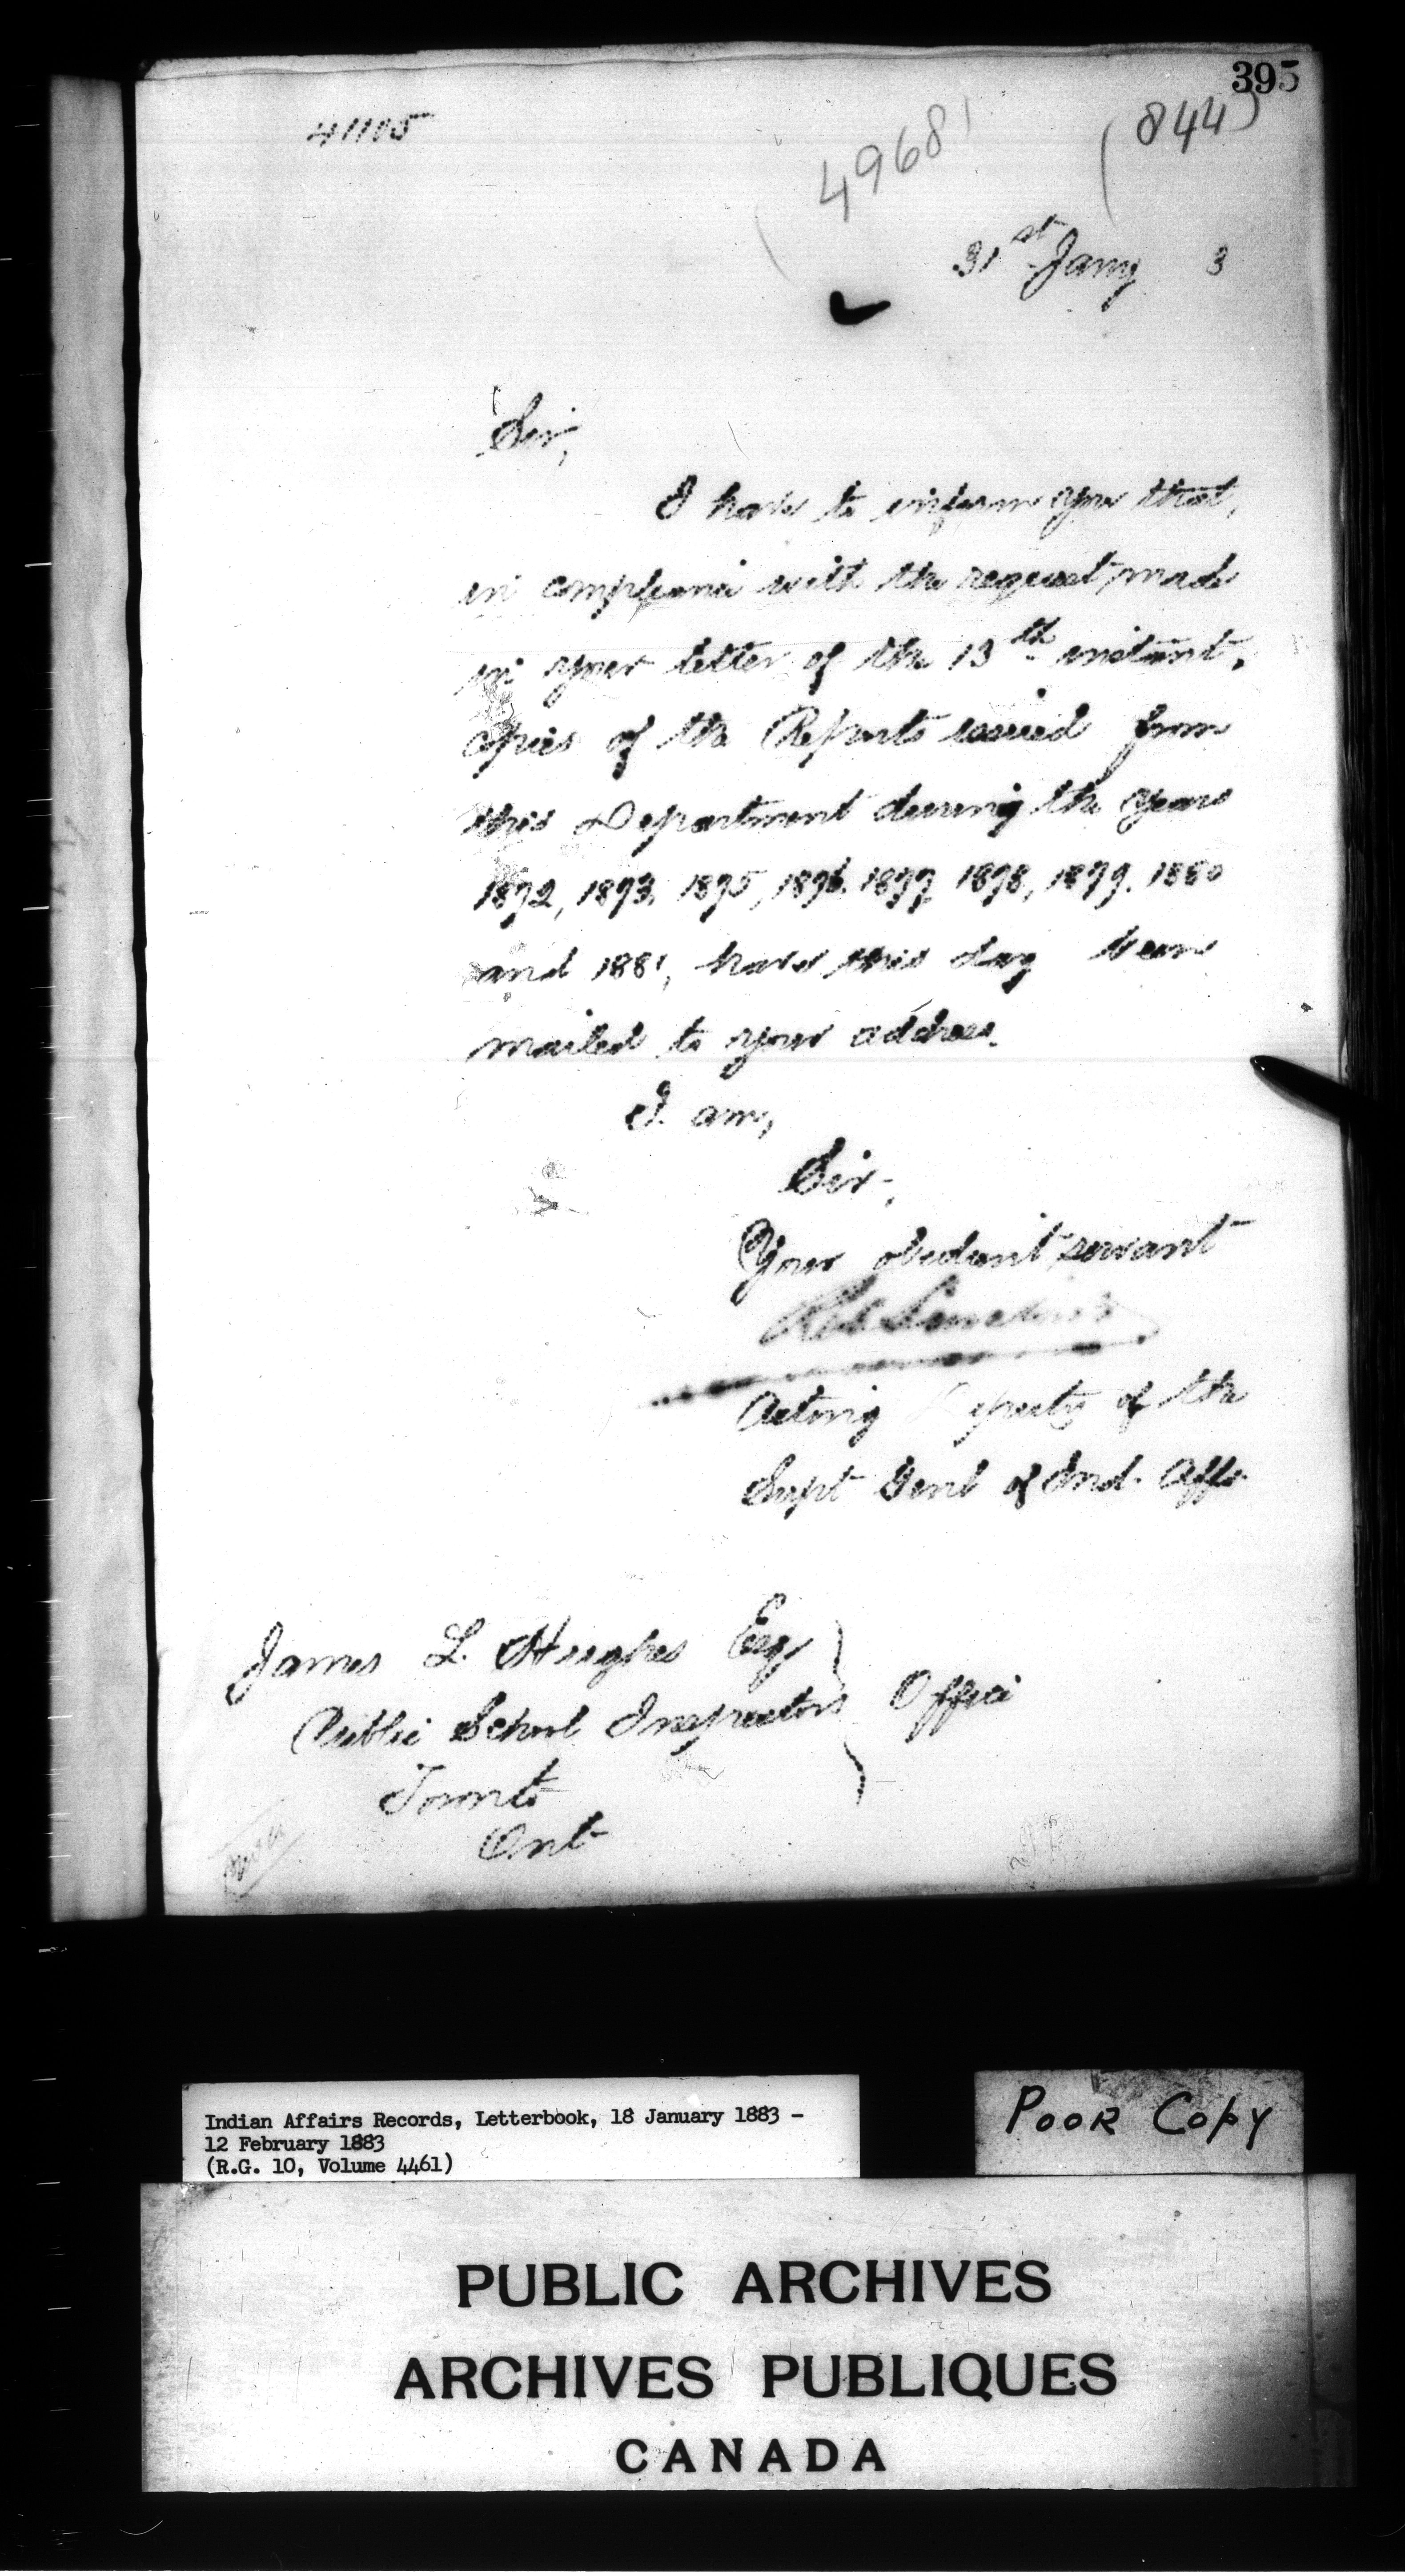 395
41105
49681
(844)
31st Jany 3
Sir,
I have to inform you that,
in compliance with the request made
in your letter of the 13th instant,
copies of the Reports issued from
this Department during the years
1872, 1873, 1875, 1876, 1877, 1878, 1879, 1880
and 1881, have this day been
mailed to your address.
I am,
Sir,
Your obedient servant
Acting Deputy of the
Supt Genl of Ind. Affs
James L. Hughes Esq
Public School Inspectors Office
Toronto
Ont
Indian Affairs Records, Letterbook, 18 January 1883 –
12 February 1883
(R.G. 10, Volume 4461)
POOR COPY
PUBLIC ARCHIVES
ARCHIVES PUBLIQUES
CANADA